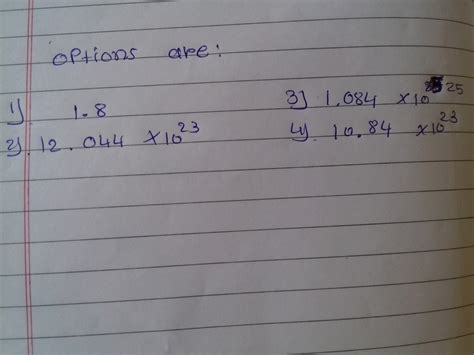 options are:
1). 1.8
3) 1.084 ×10²⁵
2). 12.044 ×10²³
4). 10.84 ×10²³